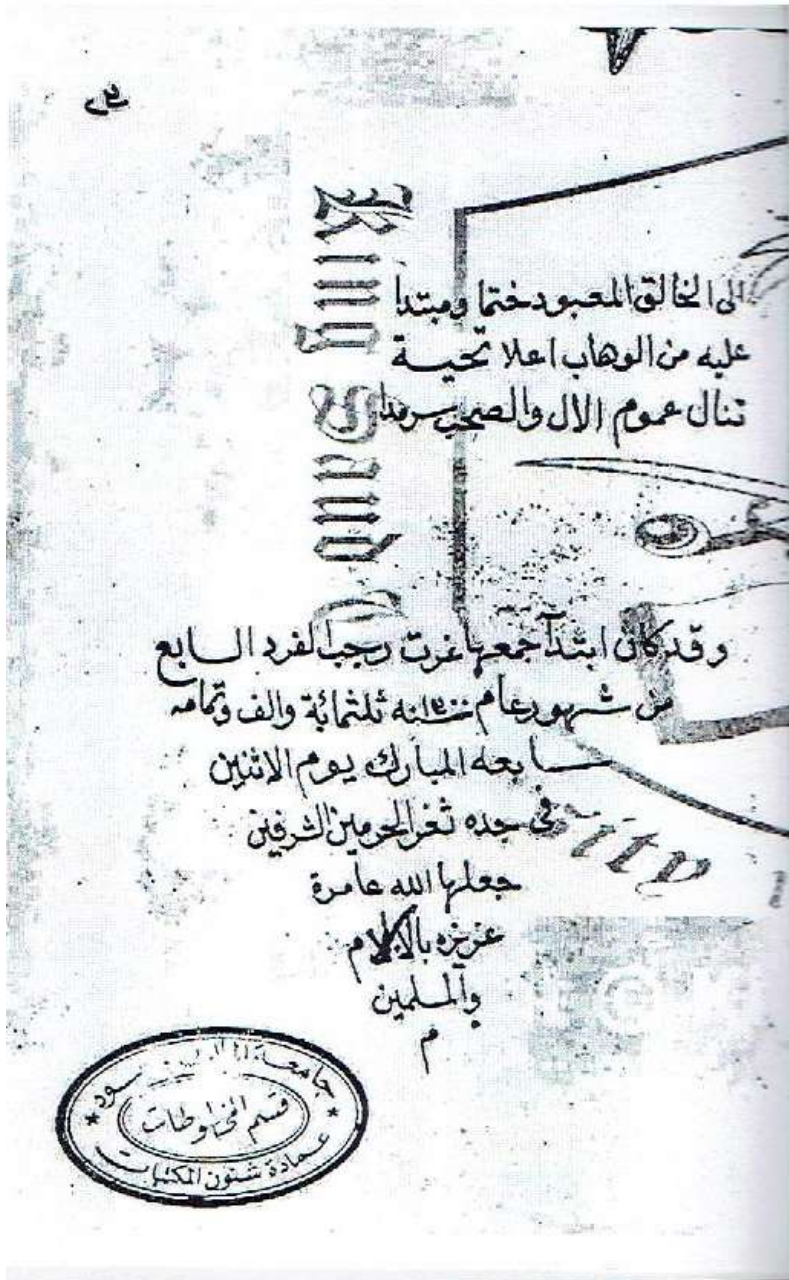 الى الخالق المعبود ختما ومبتدا
عليه من الوهاب اعلا تحية
تنال عموم الال والصحب سرمدا
وقد كان ابتدآ جمعها غرت رجب الفرد السابع
من شهور عام ١٣٠٠نه ثلثمائة والف وتمامه
سابعه المبارك يوم الاثنين
في جده ثغر الحرمين الشرفين
جعلها الله عامرة
عزيزه
والمسلمين
م
King Saud
sity
جامعة الملك سعود
قسم المخطوطات
عمادة شئون المكتبات